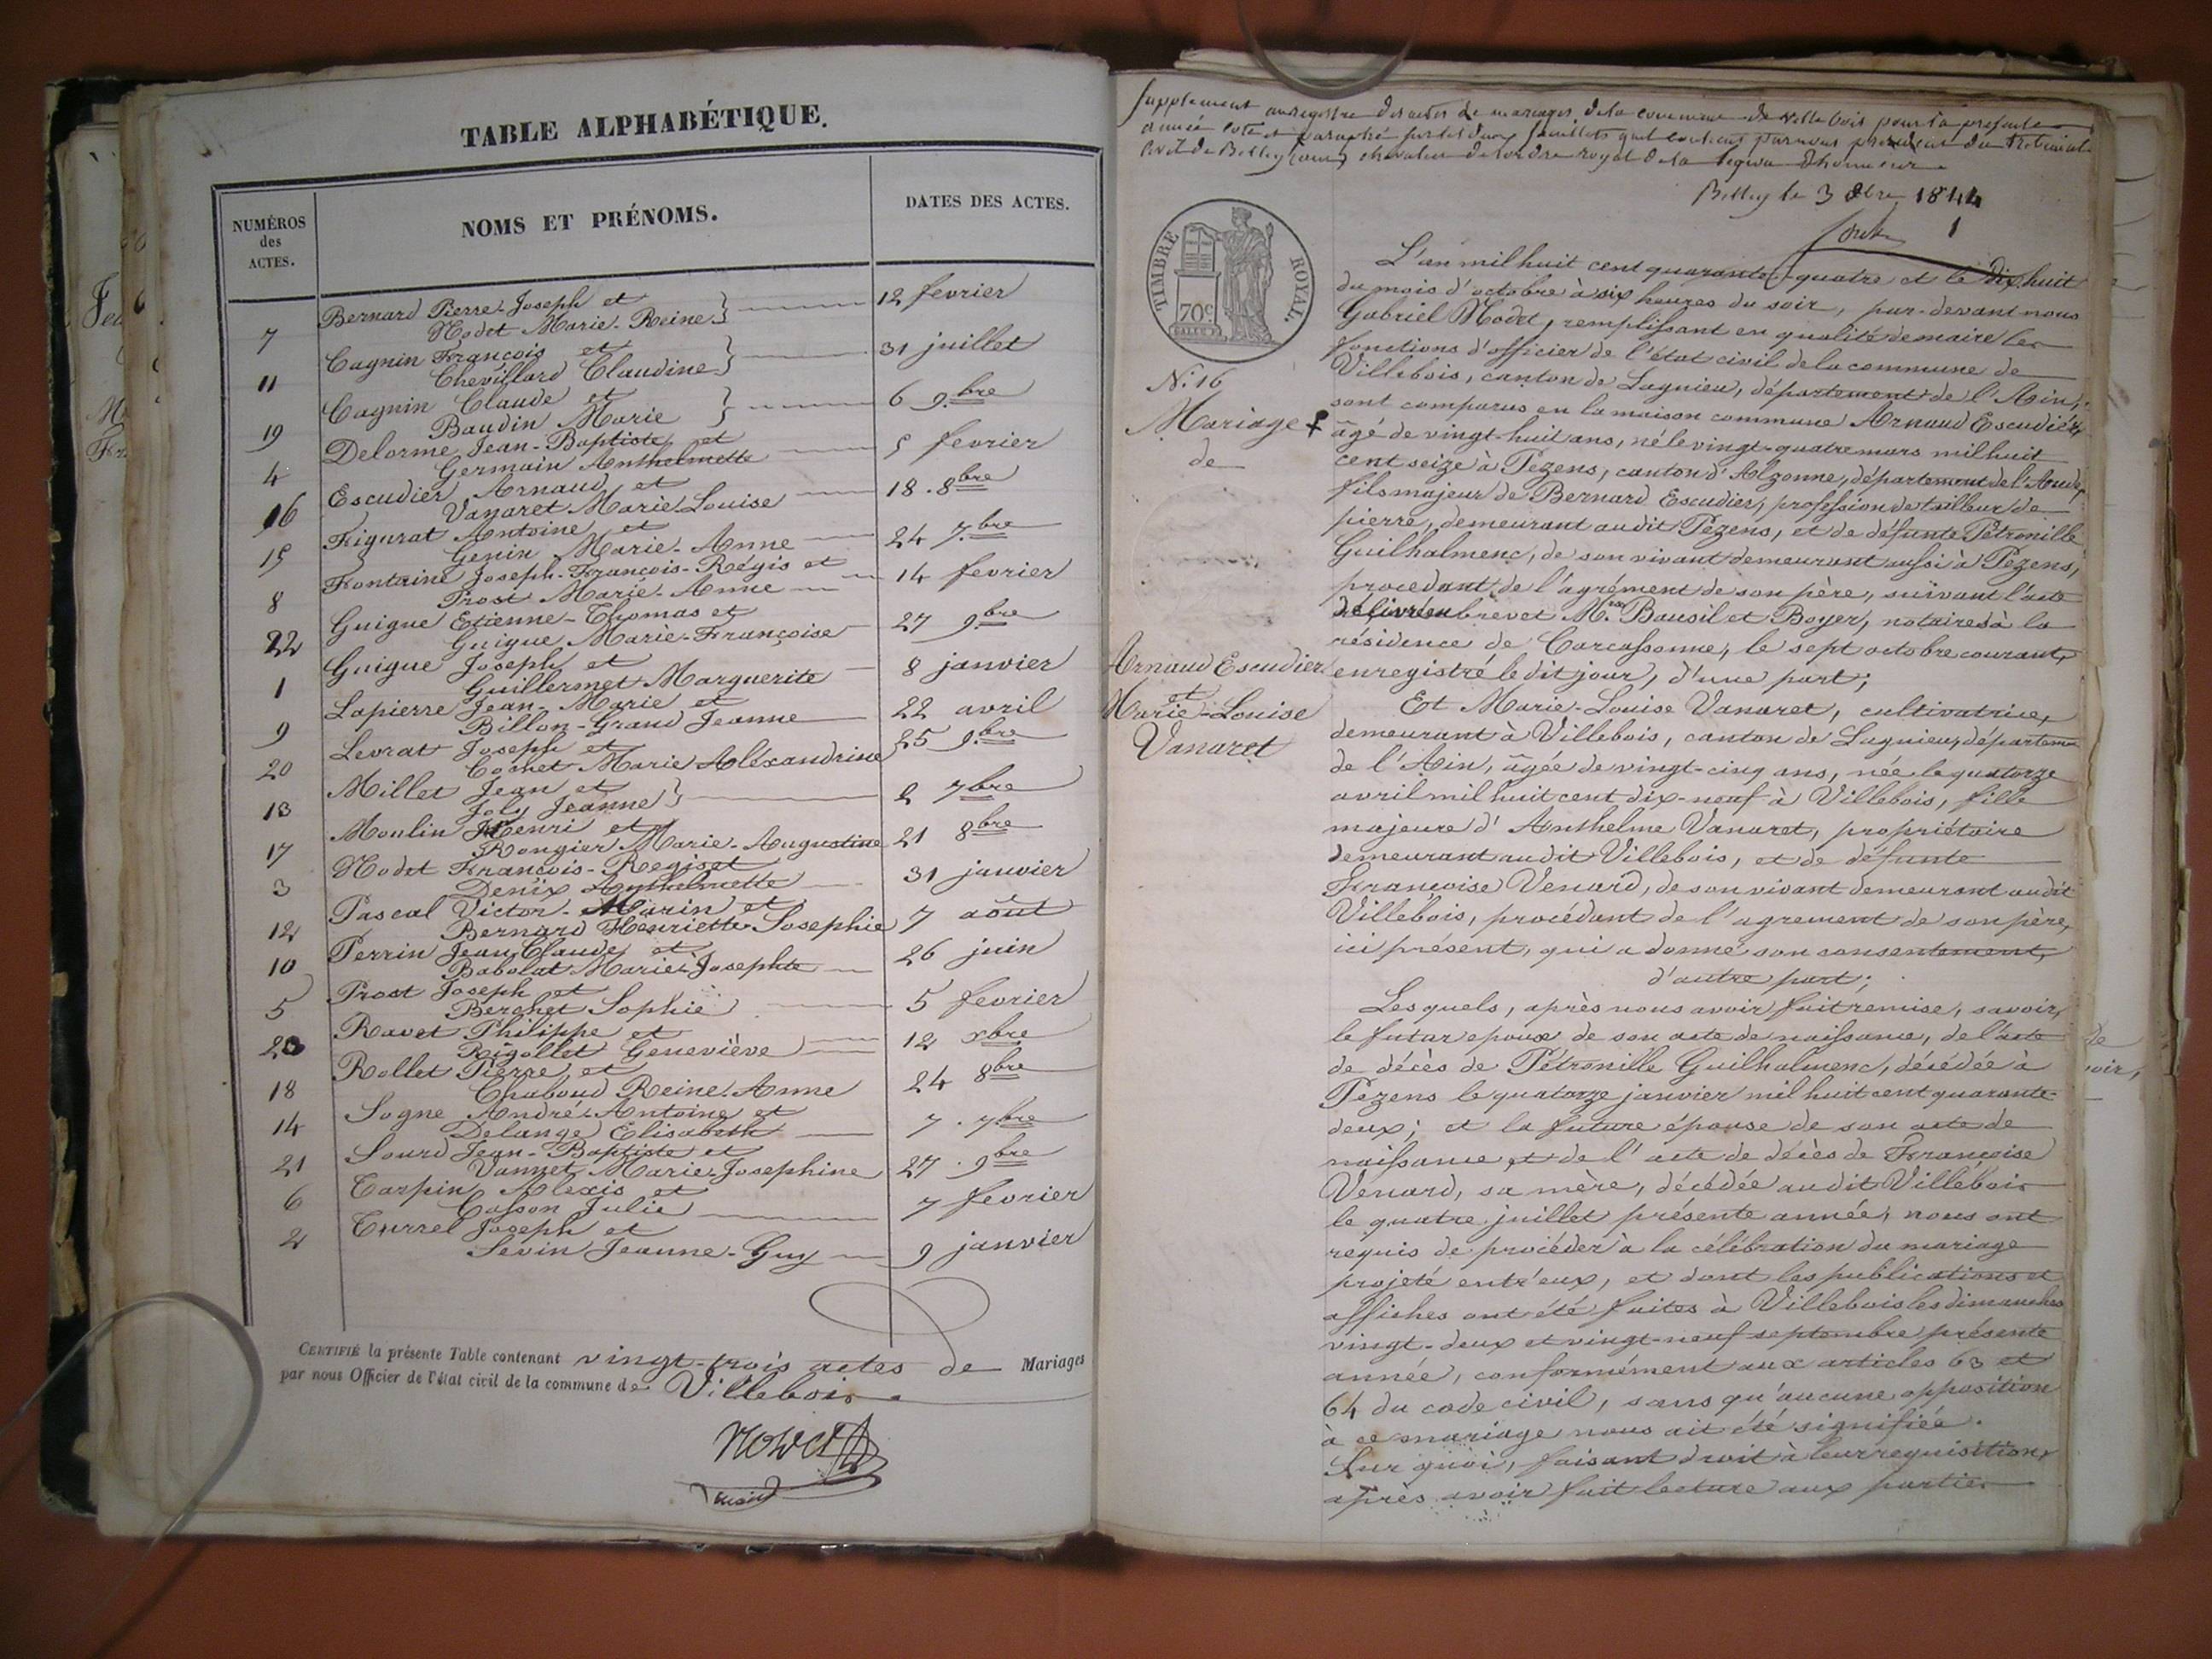 TABLE ALPHABÉTIQUE.
NUMÉROS des ACTES.
NOMS ET PRÉNOMS.
DATES DES ACTES.
7 Bernard Pierre-Joseph et 12 fevrier
Nodet Marie-Reine
11 Cagnin François et 31 juillet
Chevillard Claudine
19 Cagnin Claude et 6 9.bre
Baudin Marie
4 Delorme Jean-Baptiste et 5 fevrier
Germain Anthelmette
16 Escudier Arnaud et 18. 8bre
Vanaret Marie Louise
15 Figurat Antoine et 24 7.bre
Genin Marie-Anne
8 Fontaine Joseph-François-Régis et 14 fevrier
Prost Marie-Anne
22 Guigue Etienne-Thomas et 27 9bre
Guigue Marie-Françoise
1 Guigue Joseph et 8 janvier
Guillermet Marguerite
9 Lapierre Jean-Marie et 22 avril
Billon-Grand Jeanne
20 Levrat Joseph et 25 9.bre
Cochet Marie Aléxandrine
13 Millet Jean et 2 7bre
Joly Jeanne
17 Moulin Henri et 21 8bre
Rongier Marie-Augustine
3 Nodet François-Regis et 31 janvier
Denix Anthelmette
12 Pascal Victor-Marin et 7 août
Bernard Henriette Josephie
10 Perrin Jean Claude et 26 juin
Babolat Marie Josephte
5 Prost Joseph et 5 fevrier
Berchet Sophie
23 Ravet Philippe et 12 xbre
Rigollet Geneviève
18 Rollet Pierre et 24 8bre
Chaboud Reine-Anne
14 Sogne André-Antoine et 7. 7bre
Delange Elisabeth
21 Sourd Jean-Baptiste et 27. 9bre
Vannet Marie-Josephine
6 Tarpin Alexis et 7 fevrier
Casson Julie
2 Turrel Joseph et 9 janvier
Sevin Jeanne-Guy
CERTIFIÉ la présente Table contenant vingt-trois actes de Mariages
par nous Officier de l'état civil de la commune de Villebois.
Nodet
maire
Supplement au registre des actes de mariages de la commune de Villebois pour la presente
année coté et paraphé sur les deux feuillets qu'il contient par nous president du Tribunal
civil de Belley (ain) chevalier de l'ordre royal de la legion d'honneur.
Belley le 3 8bre 1844
1
TIMBRE ROYAL.
70c
L'an mil huit cent quarante-quatre et le dix huit
du mois d'octobre à six heures du soir, par-devant nous
Gabriel Nodet, remplissant en qualité de maire les
fonctions d'officier de l'état civil de la commune de
Villebois, canton de Lagnieu, département de l'Ain,
sont comparus en la maison commune Arnaud Escudier
âgé de vingt-huit ans, né le vingt-quatre mars mil huit
cent seize à Pezens, canton d'Alzonne, département de l'Aude,
fils majeur de Bernard Escudier, profession de tailleur de
pierre, demeurant audit Pezens, et de défunte Pétronille
Guilhalmenc, de son vivant demeurant aussi à Pezens,
procedant de l'agrément de son père, suivant l'acte
délivré en brevet Mres Bausil et Boyer, notaires à la
résidence de Carcassonne, le sept octobre courant,
enregistré le dit jour, d'une part;
N.º 16
Mariage
de
Arnaud Escudier
et
Marie-Louise
Vanaret
Et Marie-Louise Vanaret, cultivatrice,
demeurant à Villebois, canton de Lagnieu, départem
de l'Ain, âgée de vingt-cinq ans, née le quatorze
avril mil huit cent dix-neuf à Villebois, fille
majeure d'Anthelme Vanaret, propriétaire
demeurant audit Villebois, et de défunte
Françoise Venard, de son vivant demeurant audit
Villebois, procédant de l'agrement de son père,
ici présent, qui a donné son consentement,
d'autre part;
Lesquels, après nous avoir fait remise, savoir,
le futur epoux de son acte de naissance, de l'acte
de décès de Pétronille Guilhalmenc, décédée à
Pezens le quatorze janvier mil huit cent quarante-
deux; et la future épouse de son acte de
naissance et de l'acte de décès de Françoise
Venard, sa mère, décédée audit Villebois
le quatre juillet présente année, nous ont
requis de procéder à la célébration du mariage
projeté entr'eux, et dont les publications et
affiches ont été faites à Villebois les dimanches
vingt-deux et vingt-neuf septembre présente
année, conformément aux articles 63 et
64 du code civil, sans qu'aucune opposition
à ce mariage nous ait été signifiée.
Sur quoi, faisant droit à leur requisition,
après avoir fait lecture aux parties